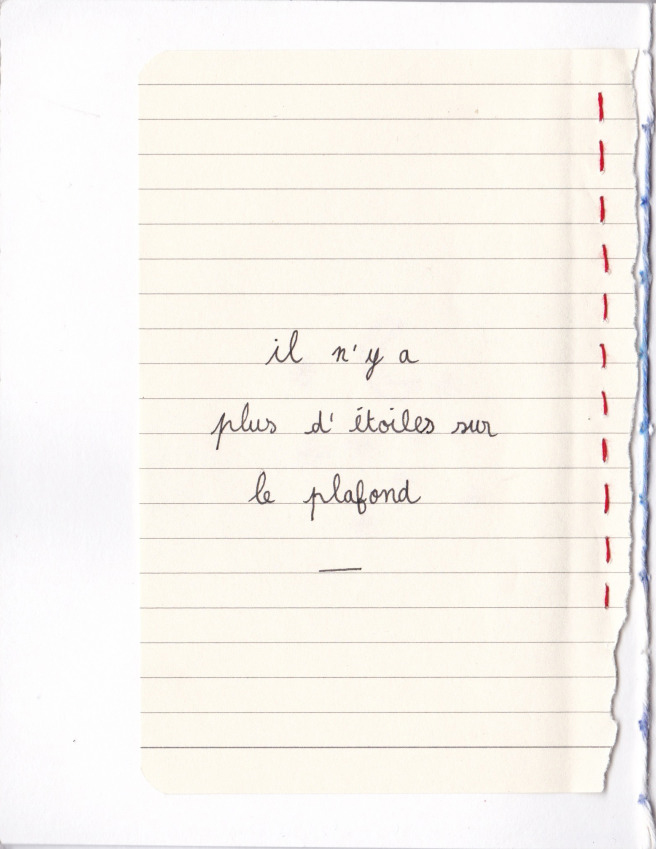 il n'y a
plus d'étoiles sur
le plafond